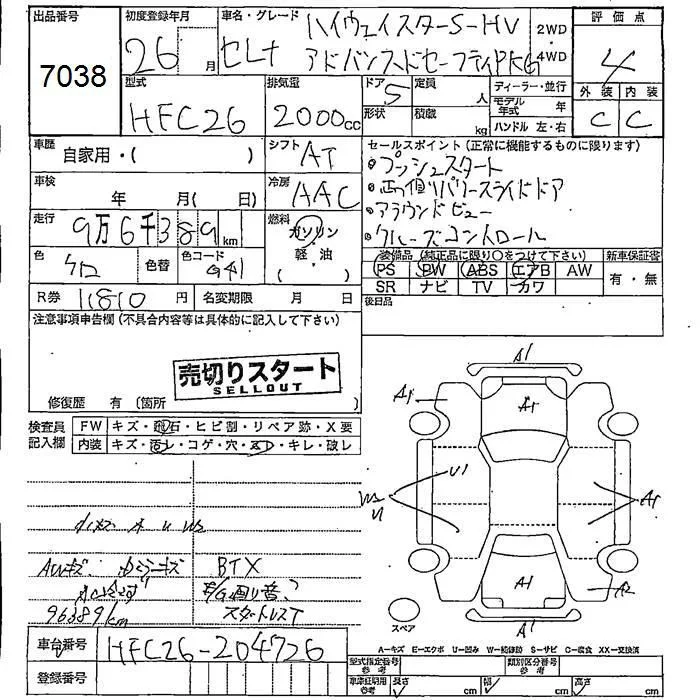 出品番号
7038
初度登録年月
26 月
車名・グレード
セレナ
ハイウェイスターS-HV
アドバンスドセーフティPKG
2WD
4WD
評価点
4
外装 内装
C C
型式
HFC26
排気量
2000cc
ドア
5
形状
定員
人
積載
kg
ディーラー・並行
モデル年式 年
ハンドル 左・右
車歴
自家用・( )
シフト
AT
車検
年 月( 日)
冷房
AAC
走行
9万6千389km
燃料
ガソリン
軽・油
( )
色
色替
色コード
G41
R券 11810円
名変期限 月 日
セールスポイント(正常に機能するものに限ります)
・プッシュスタート
・両側パワースライドドア
・アラウンドビュー
・クルーズコントロール
装備品(純正品に限り○をつけて下さい)
PS PW ABS エアB AW
SR ナビ TV カワ
新車保証書
有・無
後日品
注意事項申告欄(不具合内容等は具体的に記入して下さい)
売切りスタート
SELLOUT
修復歴 有(箇所 )
検査員記入欄
FW キズ・飛石・ヒビ割・リペア跡・X要
内装 キズ・汚レ・コゲ・穴・スレ・キレ・破レ
AWキズ
ドアミラーキズ
96389km
BTX
スタートレスT
A1
A1
A1
U1
A1
A1
A2
A1
スペア
A-キズ E-エクボ U-凹み W-補修跡 S-サビ C-腐食 XX-交換済
車台番号
HFC26-204726
登録番号
型式指定番号 参考
類別区分番号 参考
車庫証明用 参考
長さ cm
幅 cm
高さ cm